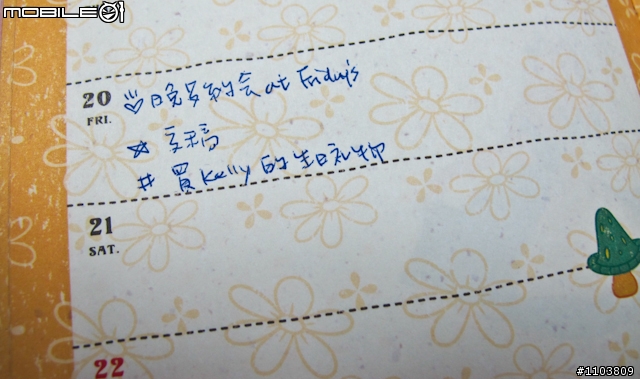 MOBILE01
20
FRI.
♡晚上約會at Friday's
☆交稿
# 買Kelly的生日礼物
21
SAT.
22
#1103809